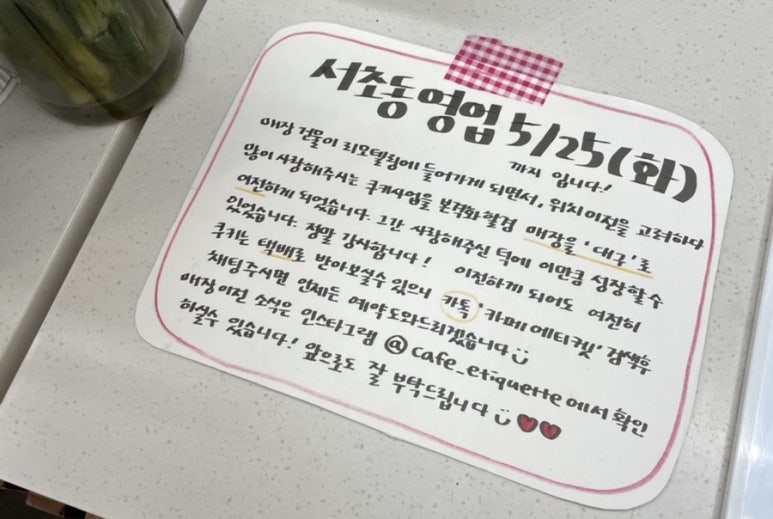 서초동 영업 5/25(화)
까지 입니다!
매장 건물이 리모델링에 들어가게 되면서, 위치이전을 고려하다
많이 사랑해주시는 쿠키사업을 본격화할겸 매장을 '대구'로
이전하게 되었습니다. 그간 사랑해주신 덕에 이만큼 성장할수
있었습니다. 정말 감사합니다! 이전하게 되어도 여전히
쿠키는 택배로 받아보실수 있으니 카톡 '카페에티켓' 검색후
채팅주시면 언제든 예약도와드리겠습니다
매장이전 소식은 인스타그램 @cafe_etiquette 에서 확인
하실수 있습니다! 앞으로도 잘 부탁드립니다